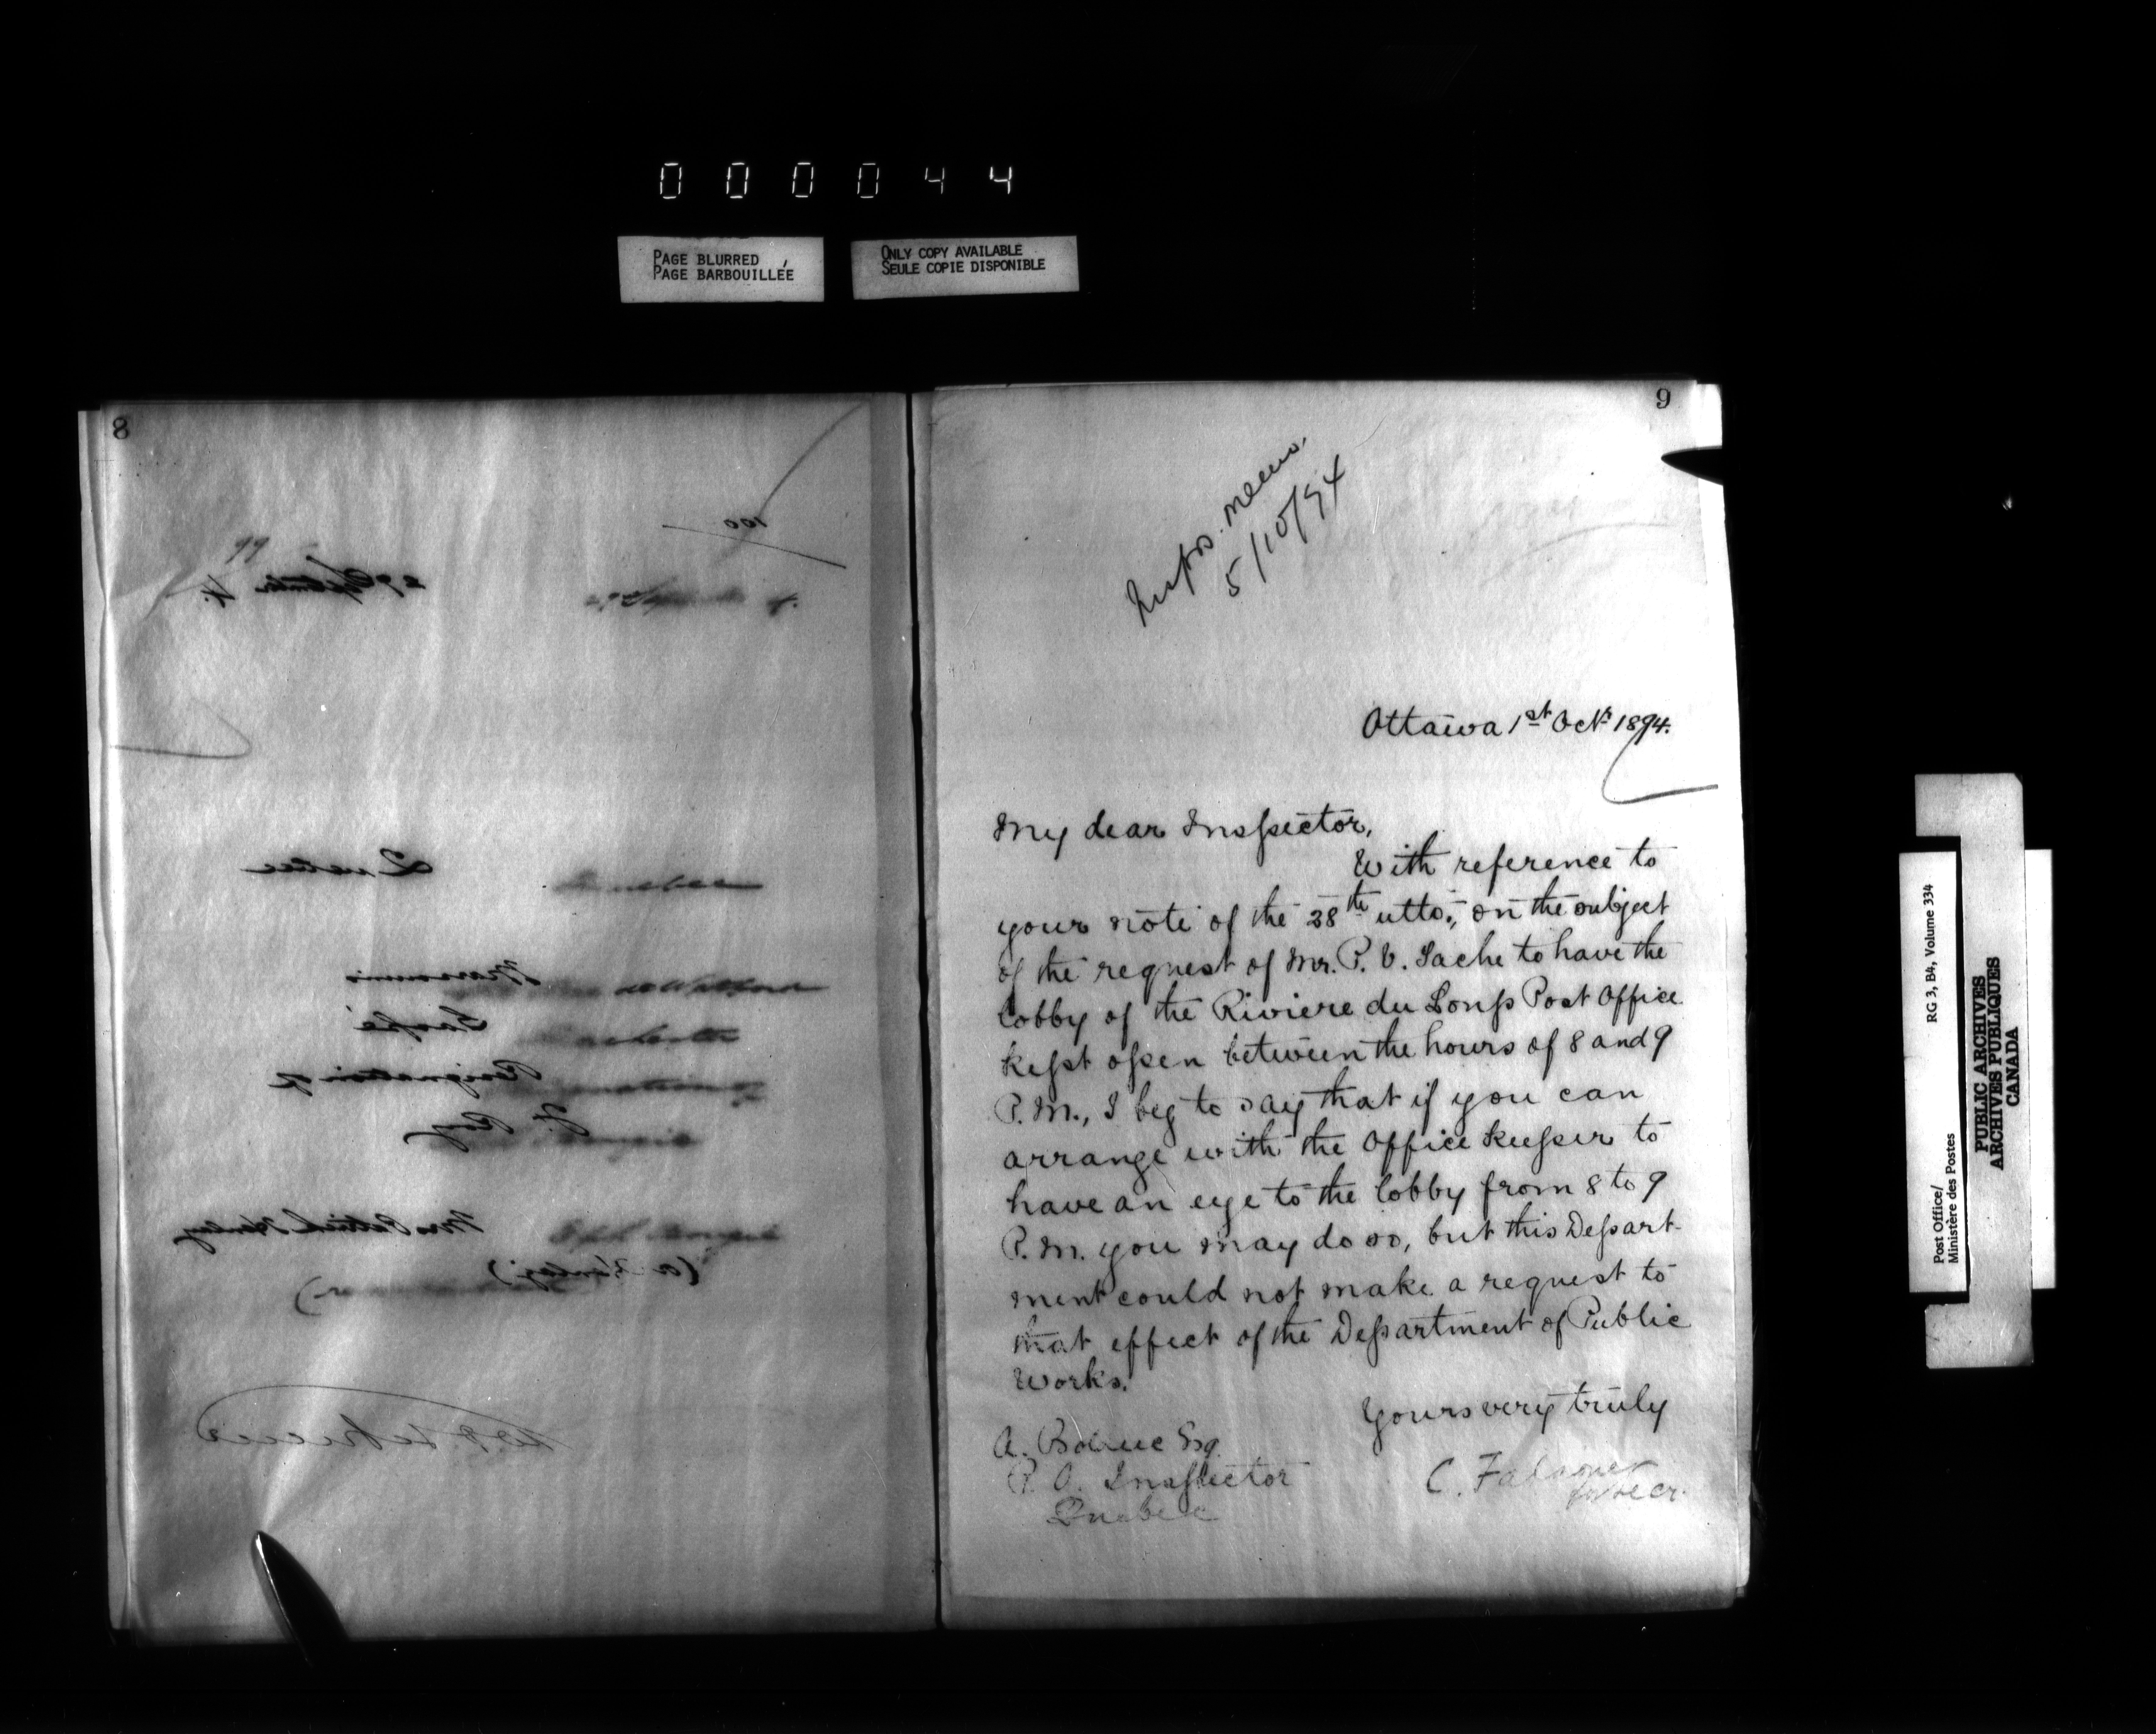 000044
PAGE BLURRED
PAGE BARBOUILLÉE
ONLY COPY AVAILABLE
SEULE COPIE DISPONIBLE
8
100
99
27 September 4.
Quebec
Resignation of
F. Roy
Mrs Patrick Henley
(a Henley)
9
memo.
5/10/94
Ottawa 1st Oct 1894.
My dear Inspector,
With reference to
your note of the 28th ulto., on the subject
of the request of Mr. P. V. Tache to have the
lobby of the Riviere du Loup Post Office
kept open between the hours of 8 and 9
P.M., I beg to say that if you can
arrange with the Office Keeper to
have an eye to the lobby from 8 to 9
P.M. you may do so, but this Depart-
ment could not make a request to
that effect of the Department of Public
Works.
Yours very truly
A. Bolduc Esq.
P. O. Inspector
Quebec
C. Falconer
for Secr.
Post Office/
Ministère des Postes
RG 3, B4, Volume 334
PUBLIC ARCHIVES
ARCHIVES PUBLIQUES
CANADA